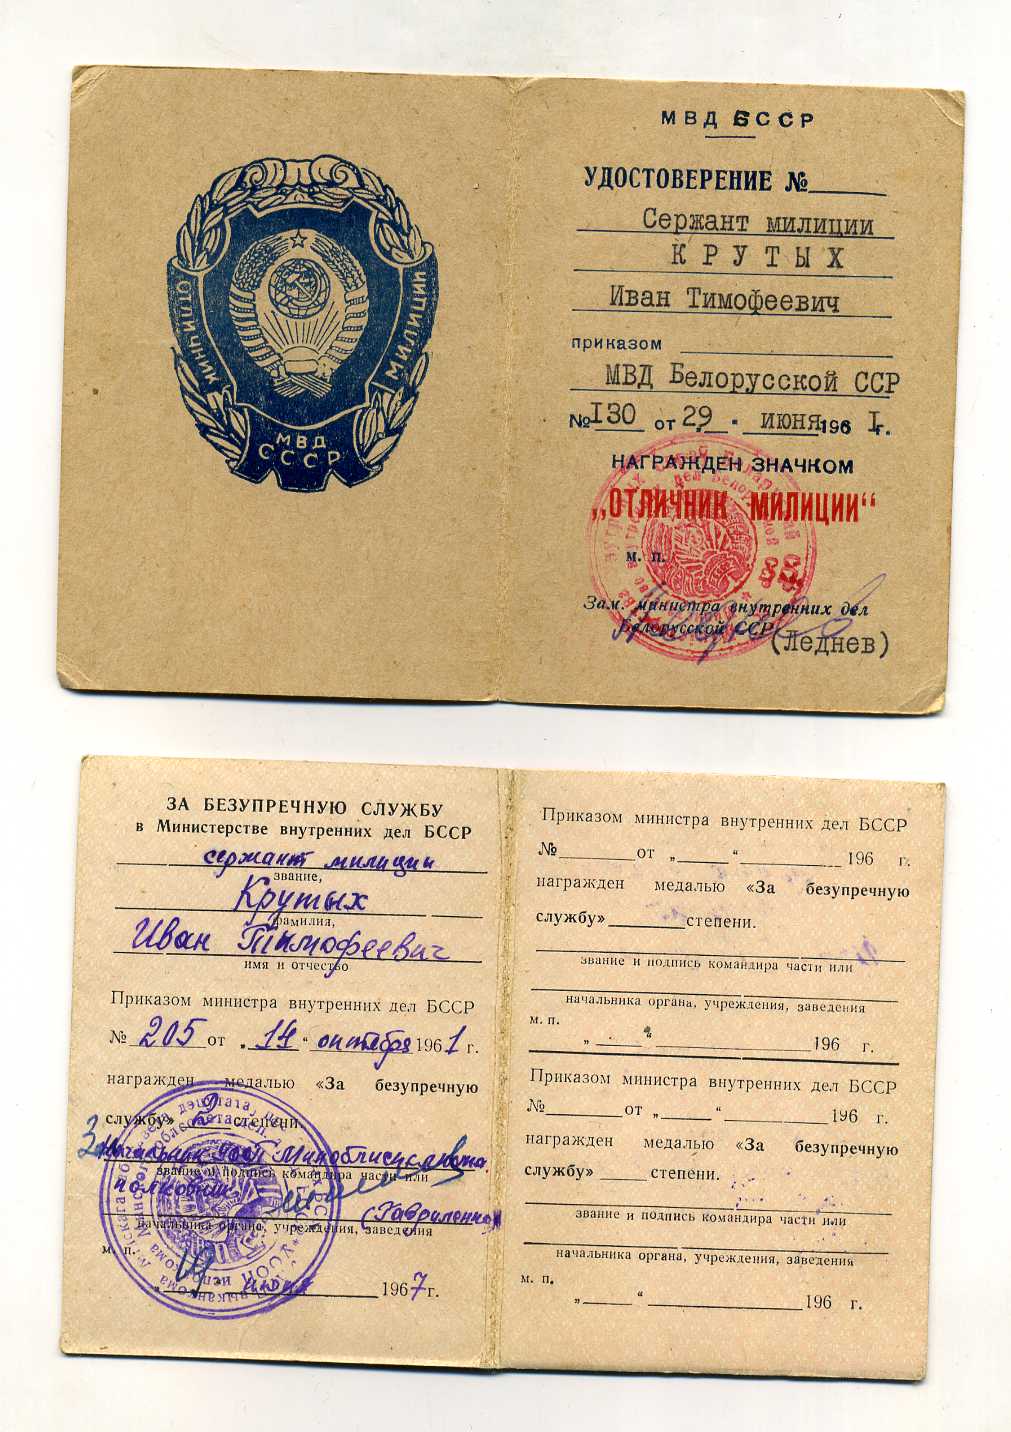 ОТЛИЧНИК
МИЛИЦИИ
МВД
СССР
МВД БССР
УДОСТОВЕРЕНИЕ №
Сержант милиции
КРУТЫХ
Иван Тимофеевич
приказом
МВД Белорусской ССР
№ I30 от 29 " июня 1961 г.
НАГРАЖДЕН ЗНАЧКОМ
„ОТЛИЧНИК МИЛИЦИИ“
м. п.
Зам. министра внутренних дел
Белорусской ССР
(Леднев)
ЗА БЕЗУПРЕЧНУЮ СЛУЖБУ
в Министерстве внутренних дел БССР
сержант милиции
звание,
Крутых
фамилия,
Иван Тимофеевич
имя и отчество
Приказом министра внутренних дел БССР
№ 205 от „14“ октября 1961 г.
награжден медалью «За безупречную
службу» степени.
звание и подпись командира части или
полковник
начальника органа, учреждения, заведения
м. п.
1967 г.
Приказом министра внутренних дел БССР
№ от „ “ 196 г.
награжден медалью «За безупречную
службу» степени.
звание и подпись командира части или
начальника органа, учреждения, заведения
м. п.
„ “ 196 г.
Приказом министра внутренних дел БССР
№ от „ “ 196 г.
награжден медалью «За безупречную
службу» степени.
звание и подпись командира части или
начальника органа, учреждения, заведения
м. п.
„ “ 196 г.